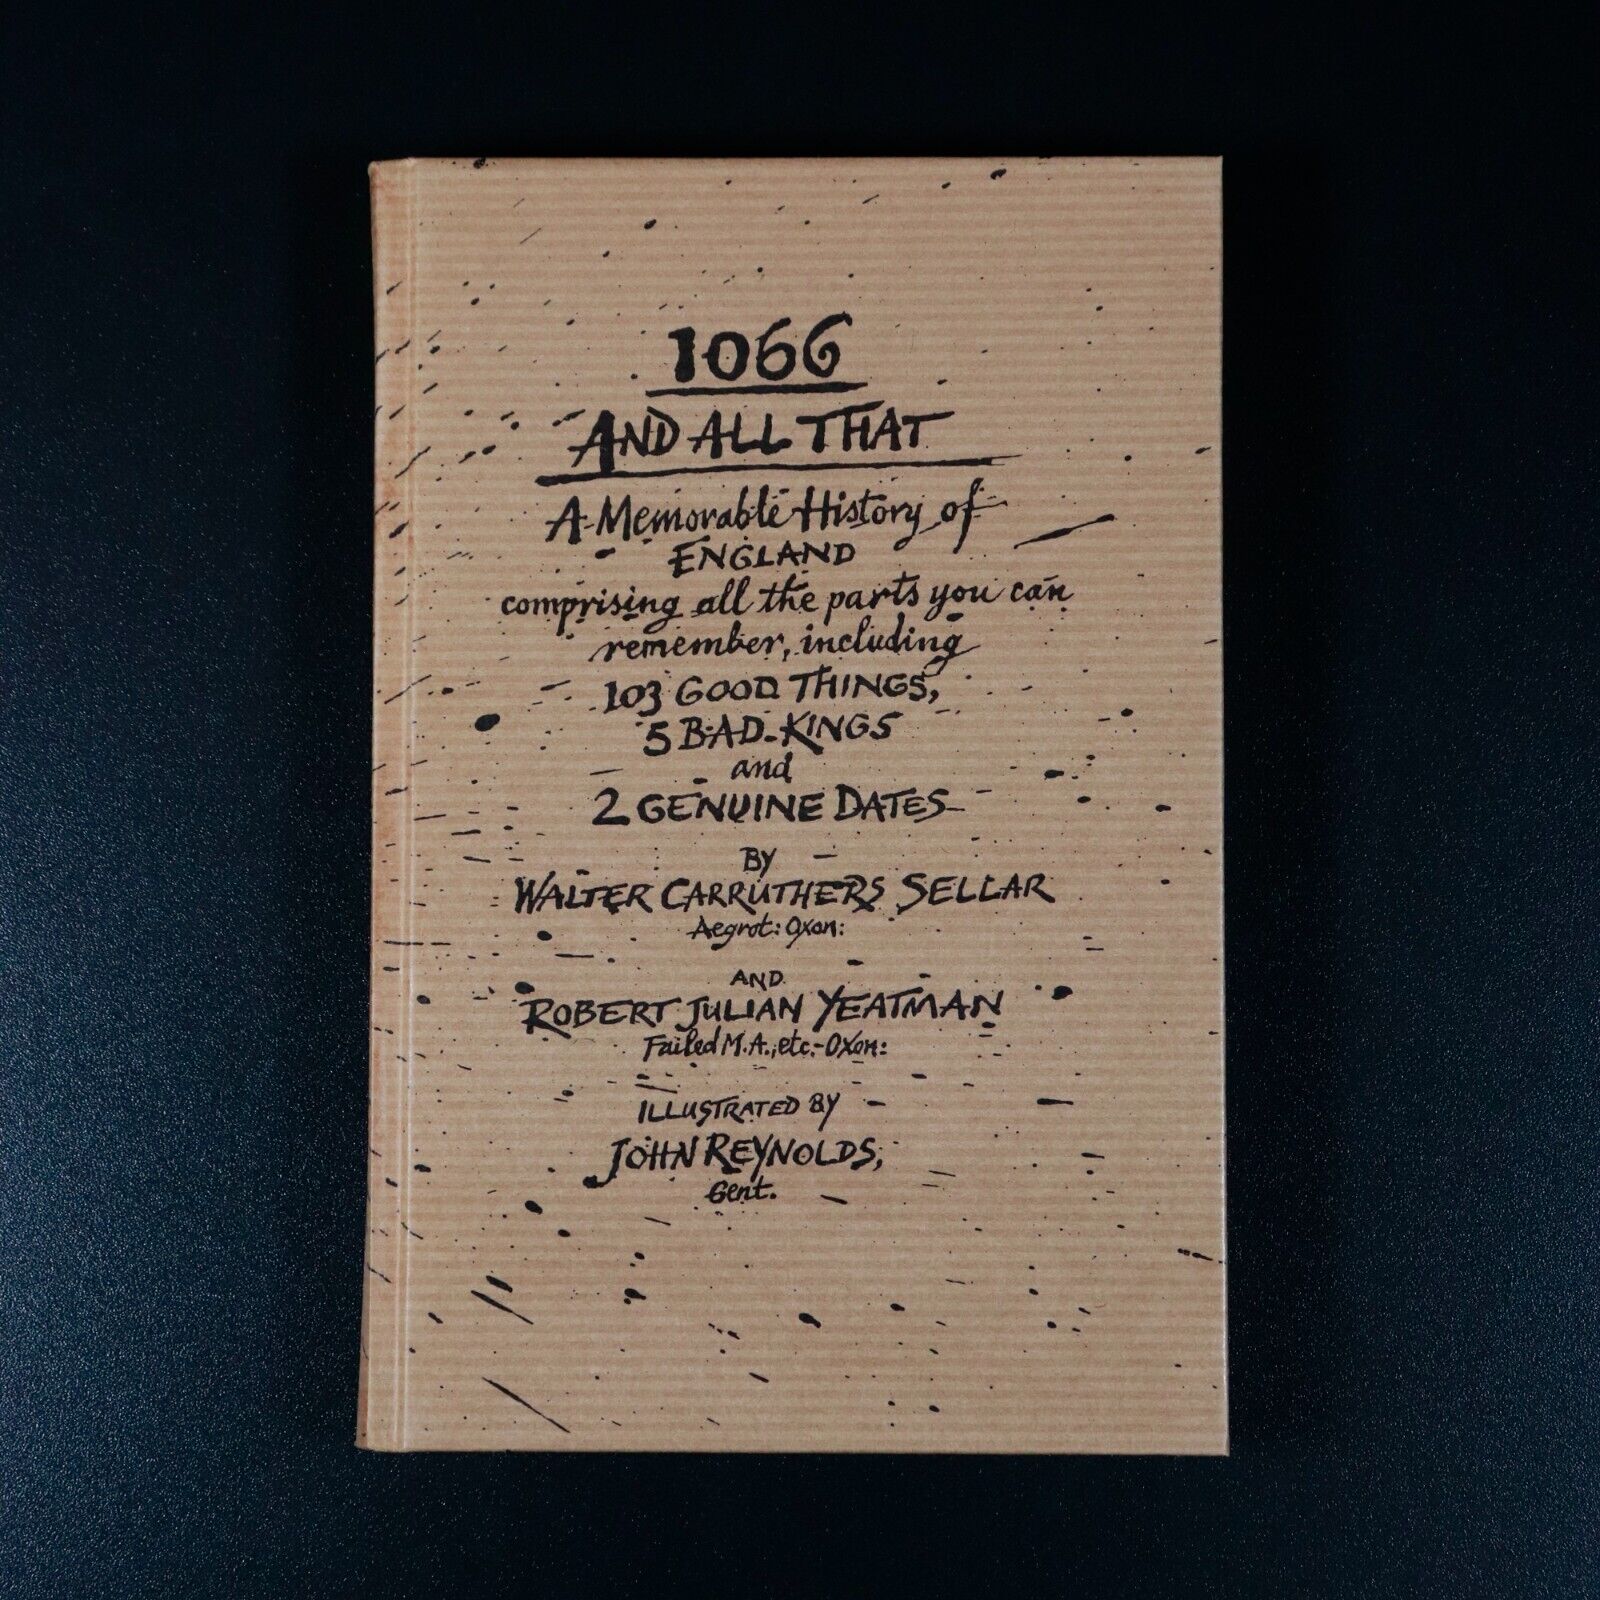 1066
AND ALL THAT
A Memorable History of
ENGLAND
comprising all the parts you can
remember, including
103 GOOD THINGS,
5 BAD KINGS
and
2 GENUINE DATES
BY
WALTER CARRUTHERS SELLAR
Aegrot: Oxon:
AND
ROBERT JULIAN YEATMAN
Failed M.A., etc. Oxon:
ILLUSTRATED BY
JOHN REYNOLDS,
Gent.